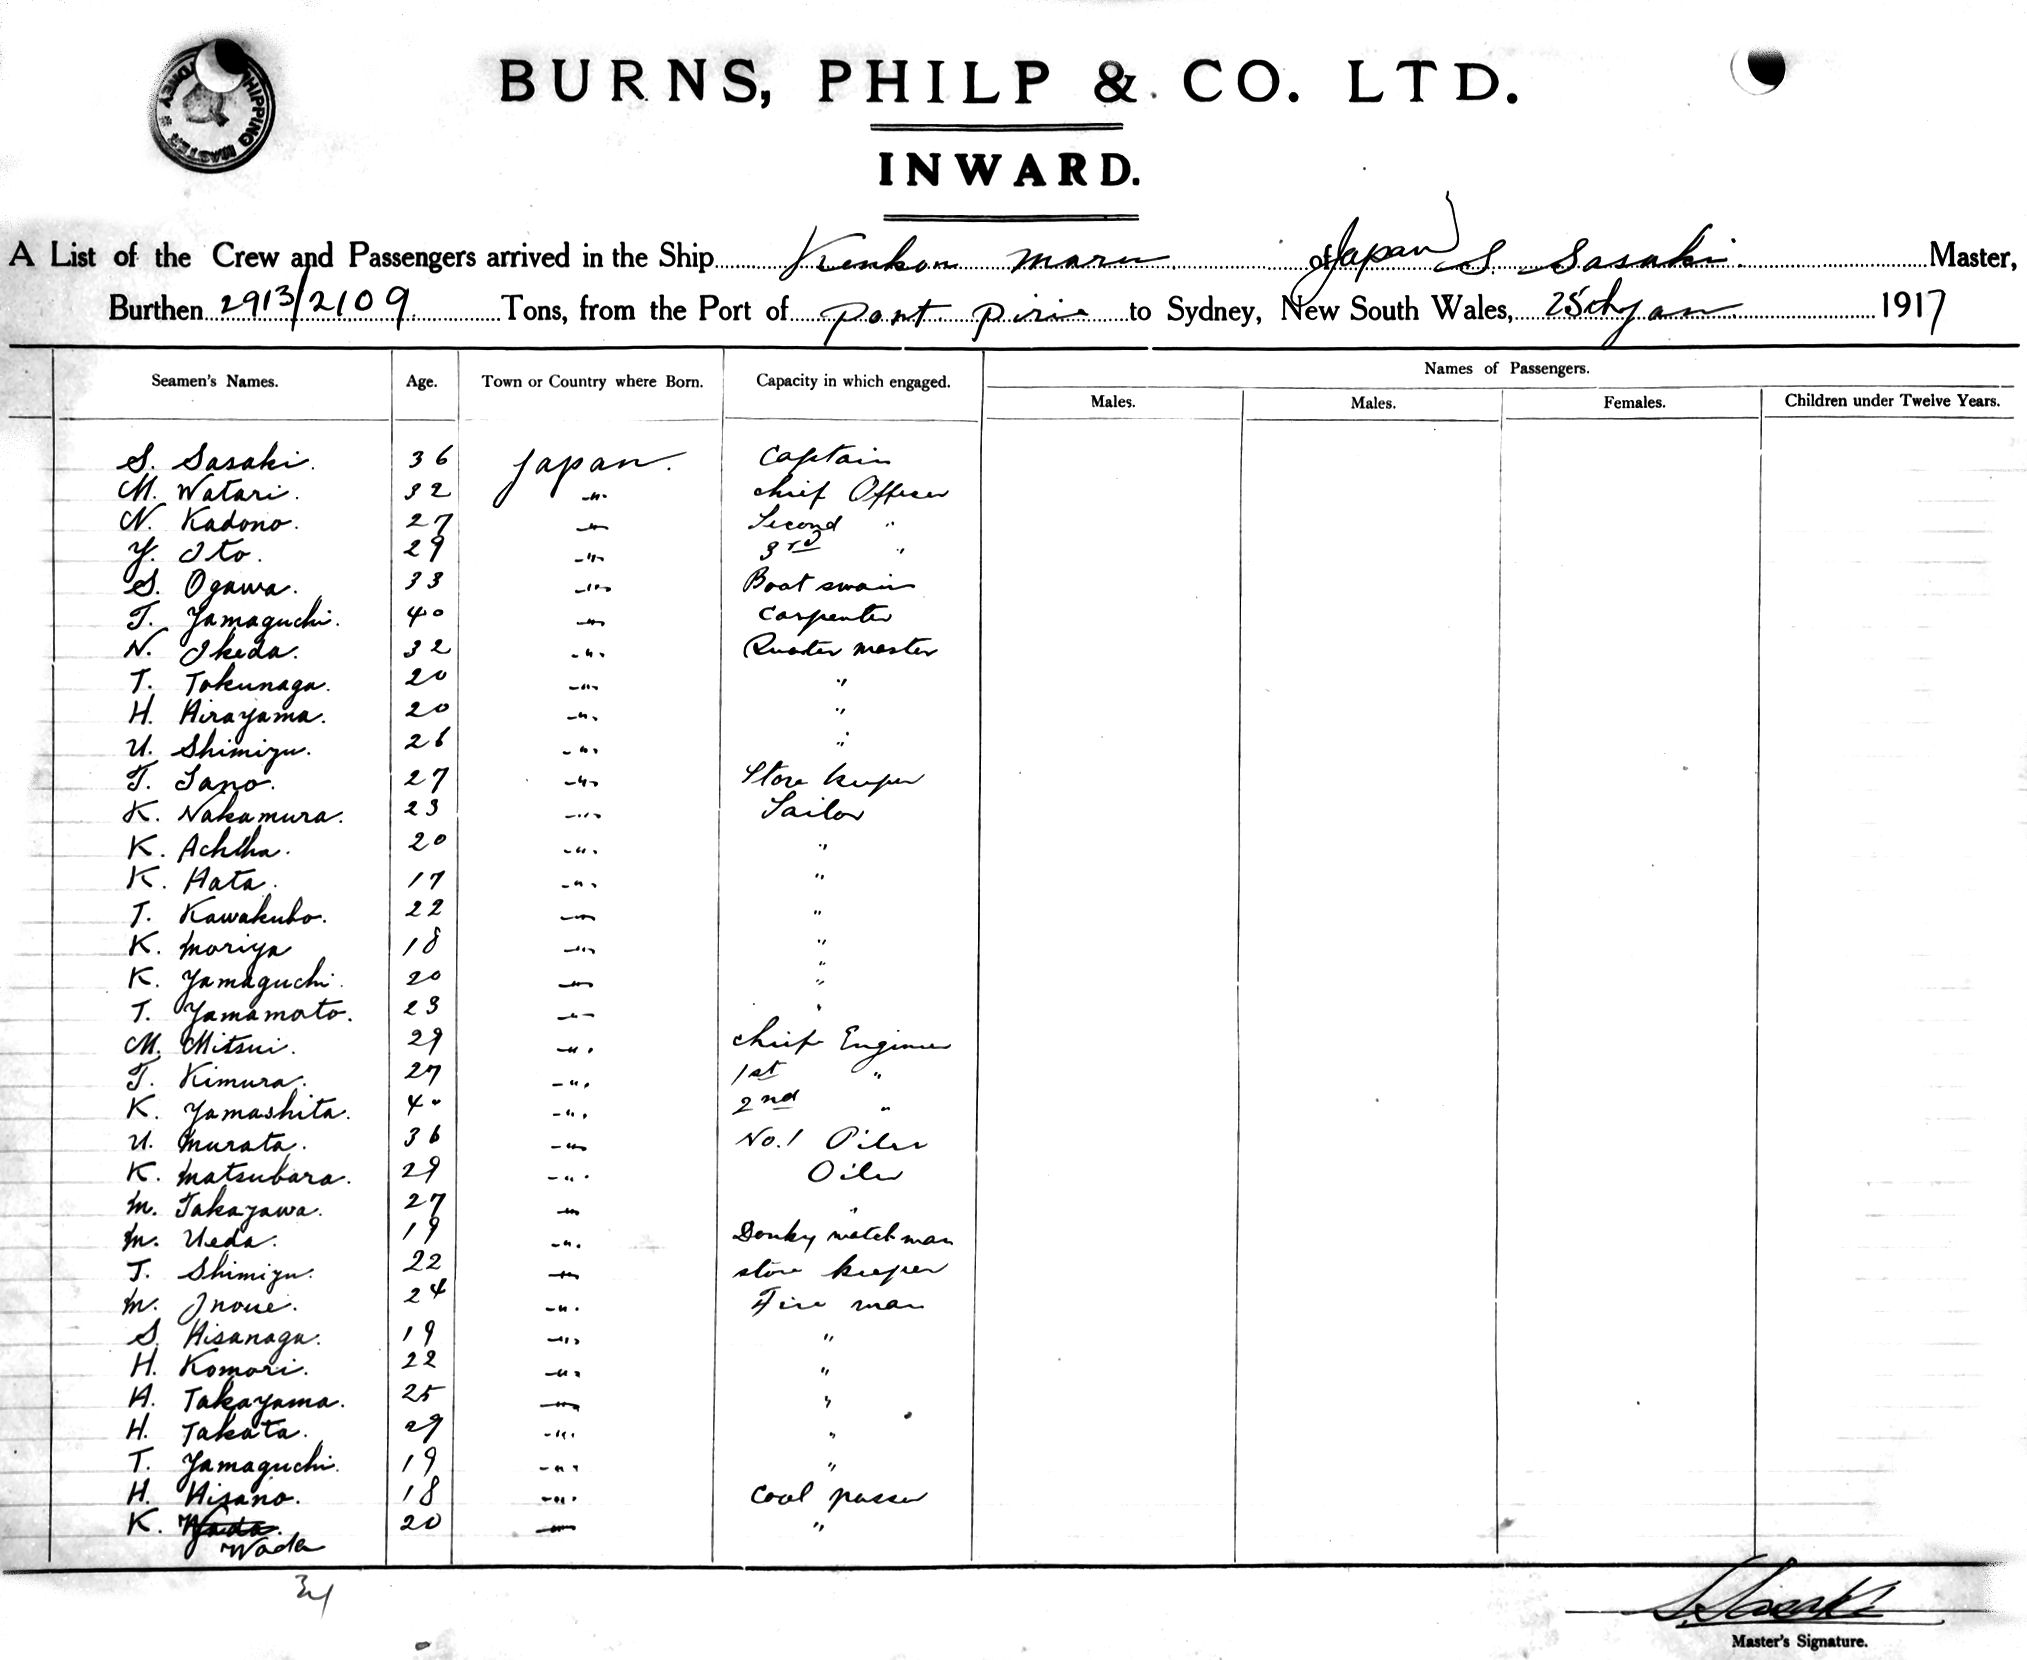 BURNS, PHILP & CO. LTD.
INWARD.
SHIPPING MASTER SYDNEY
A List of the Crew and Passengers arrived in the Ship Kenkon Maru of Japan S Sasaki Master,
Burthen 2913/2109 Tons, from the Port of Port Pirie to Sydney, New South Wales, 25th Jan 1917
Seamen's Names. Age. Town or Country where Born. Capacity in which engaged. Names of Passengers.
Males. Males. Females. Children under Twelve Years.
S. Sasaki. 36 Japan. Captain
M. Watari. 32 -"- Chief Officer
N. Kadono. 27 -"- Second "
Y. Ito. 29 -"- 3rd "
S. Ogawa. 33 -"- Boat swain
T. Yamaguchi. 40 -"- Carpenter
N. Ikeda. 32 -"- Quater master
T. Tokunaga. 20 -"- "
H. Hirayama. 20 -"- "
U. Shimizu. 26 -"- "
T. Sano. 27 -"- Store keeper
K. Nakamura. 23 -"- Sailor
K. 20 -"- "
K. Hata. 17 -"- "
T. Kawakubo. 22 -"- "
K. Moriya 18 -"- "
K. Yamaguchi. 20 -"- "
T. Yamamoto. 23 -"- "
M. Mitsui. 29 -"- Chief Engineer
T. Kimura. 27 -"- 1st "
K. Yamashita. 40 -"- 2nd "
U. Murata. 36 -"- No. 1 Oiler
K. Matsubara. 29 -"- Oiler
M. Takayawa. 27 -"- "
M. Ueda. 19 -"- Donky watch man
T. Shimizu. 22 -"- store keeper
M. Inoue. 24 -"- Fire man
S. Hisanaga. 19 -"- "
H. Komori. 22 -"- "
H. Takayama. 25 -"- "
H. Takata. 29 -"- "
T. Yamaguchi. 19 -"- "
H. Hisano. 18 -"- Coal passer
K. Wada. 20 -"- "
Wada
34
S. Sasaki
Master's Signature.